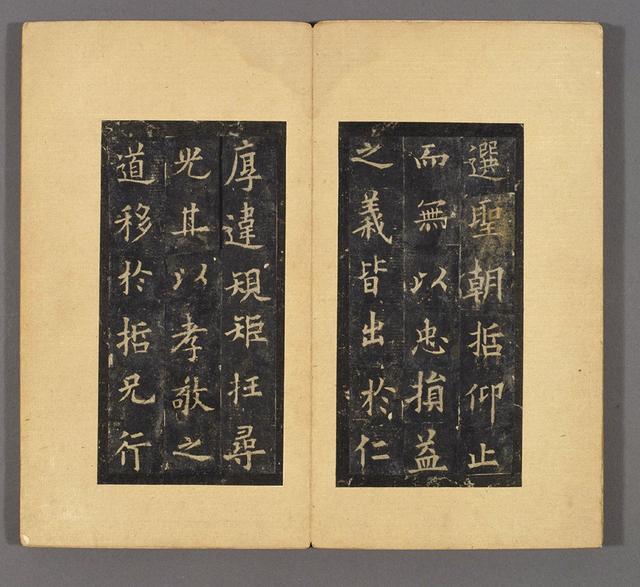 選聖朝哲仰止
而無以忠損益
之義皆出於仁
厚違規矩枉尋
光其以孝敬之
道移於哲兄行